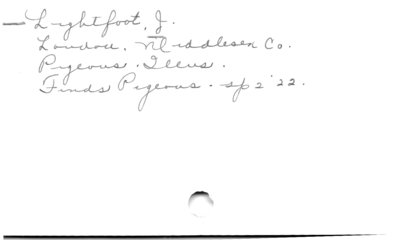 — Lightfoot, J.
London, Middlesex Co.
Pigeons. Illus.
Finds Pigeons. sp 2 '22.